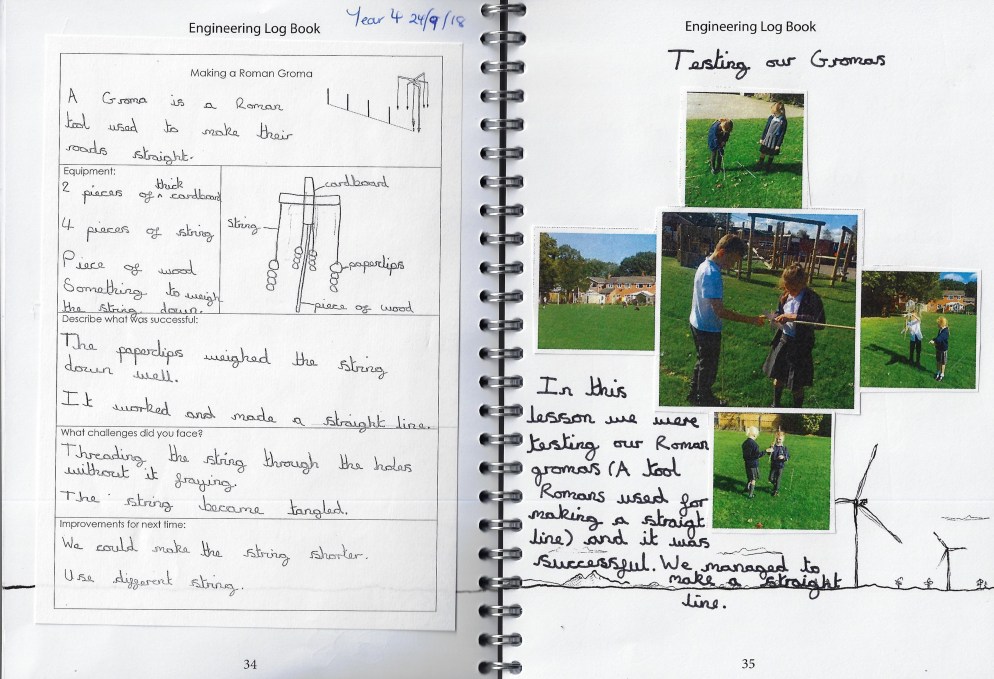 Year 4 24/9/18
Engineering Log Book
Making a Roman Groma
A Groma is a Roman
tool used to make their
roads straight.
Equipment:
2 pieces of thick cardboard
4 pieces of string
Piece of wood
Something to weigh
the string down.
cardboard
string
paperclips
piece of wood
Describe what was successful:
The paperclips weighed the string
down well.
It worked and made a straight line.
What challenges did you face?
Threading the string through the holes
without it fraying.
The string became tangled.
Improvements for next time:
We could make the string shorter.
Use different string.
34
Engineering Log Book
Testing our Gromas
In this
lesson we were
testing our Roman
gromas (A tool
Romans used for
making a straigt
line) and it was
successful. We managed to
make a straight
line.
35